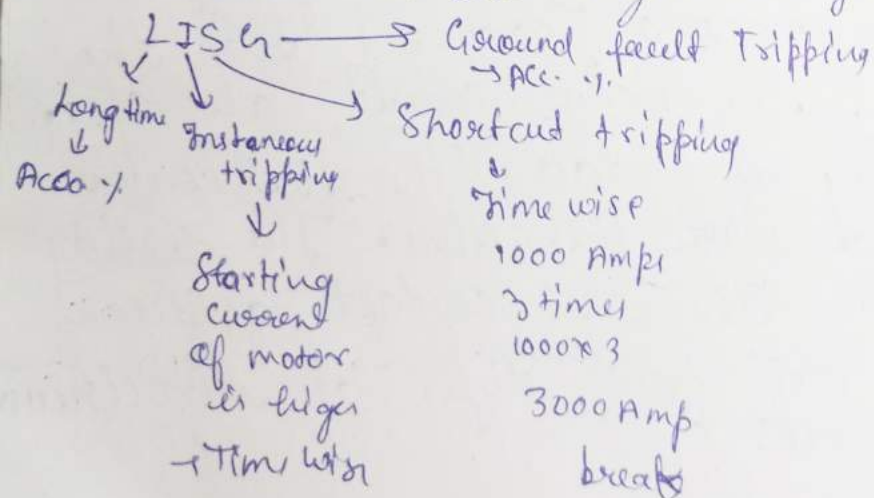 LISG → Ground fault Tripping
→ Acc. %.
Long time
↓
Acco %
Instaneous
tripping
↓
Starting
current
of motor
is higer
→ Time wise
Shortcut tripping
↓
Time wise
1000 Amps
3 times
1000 x 3
3000 Amp
break